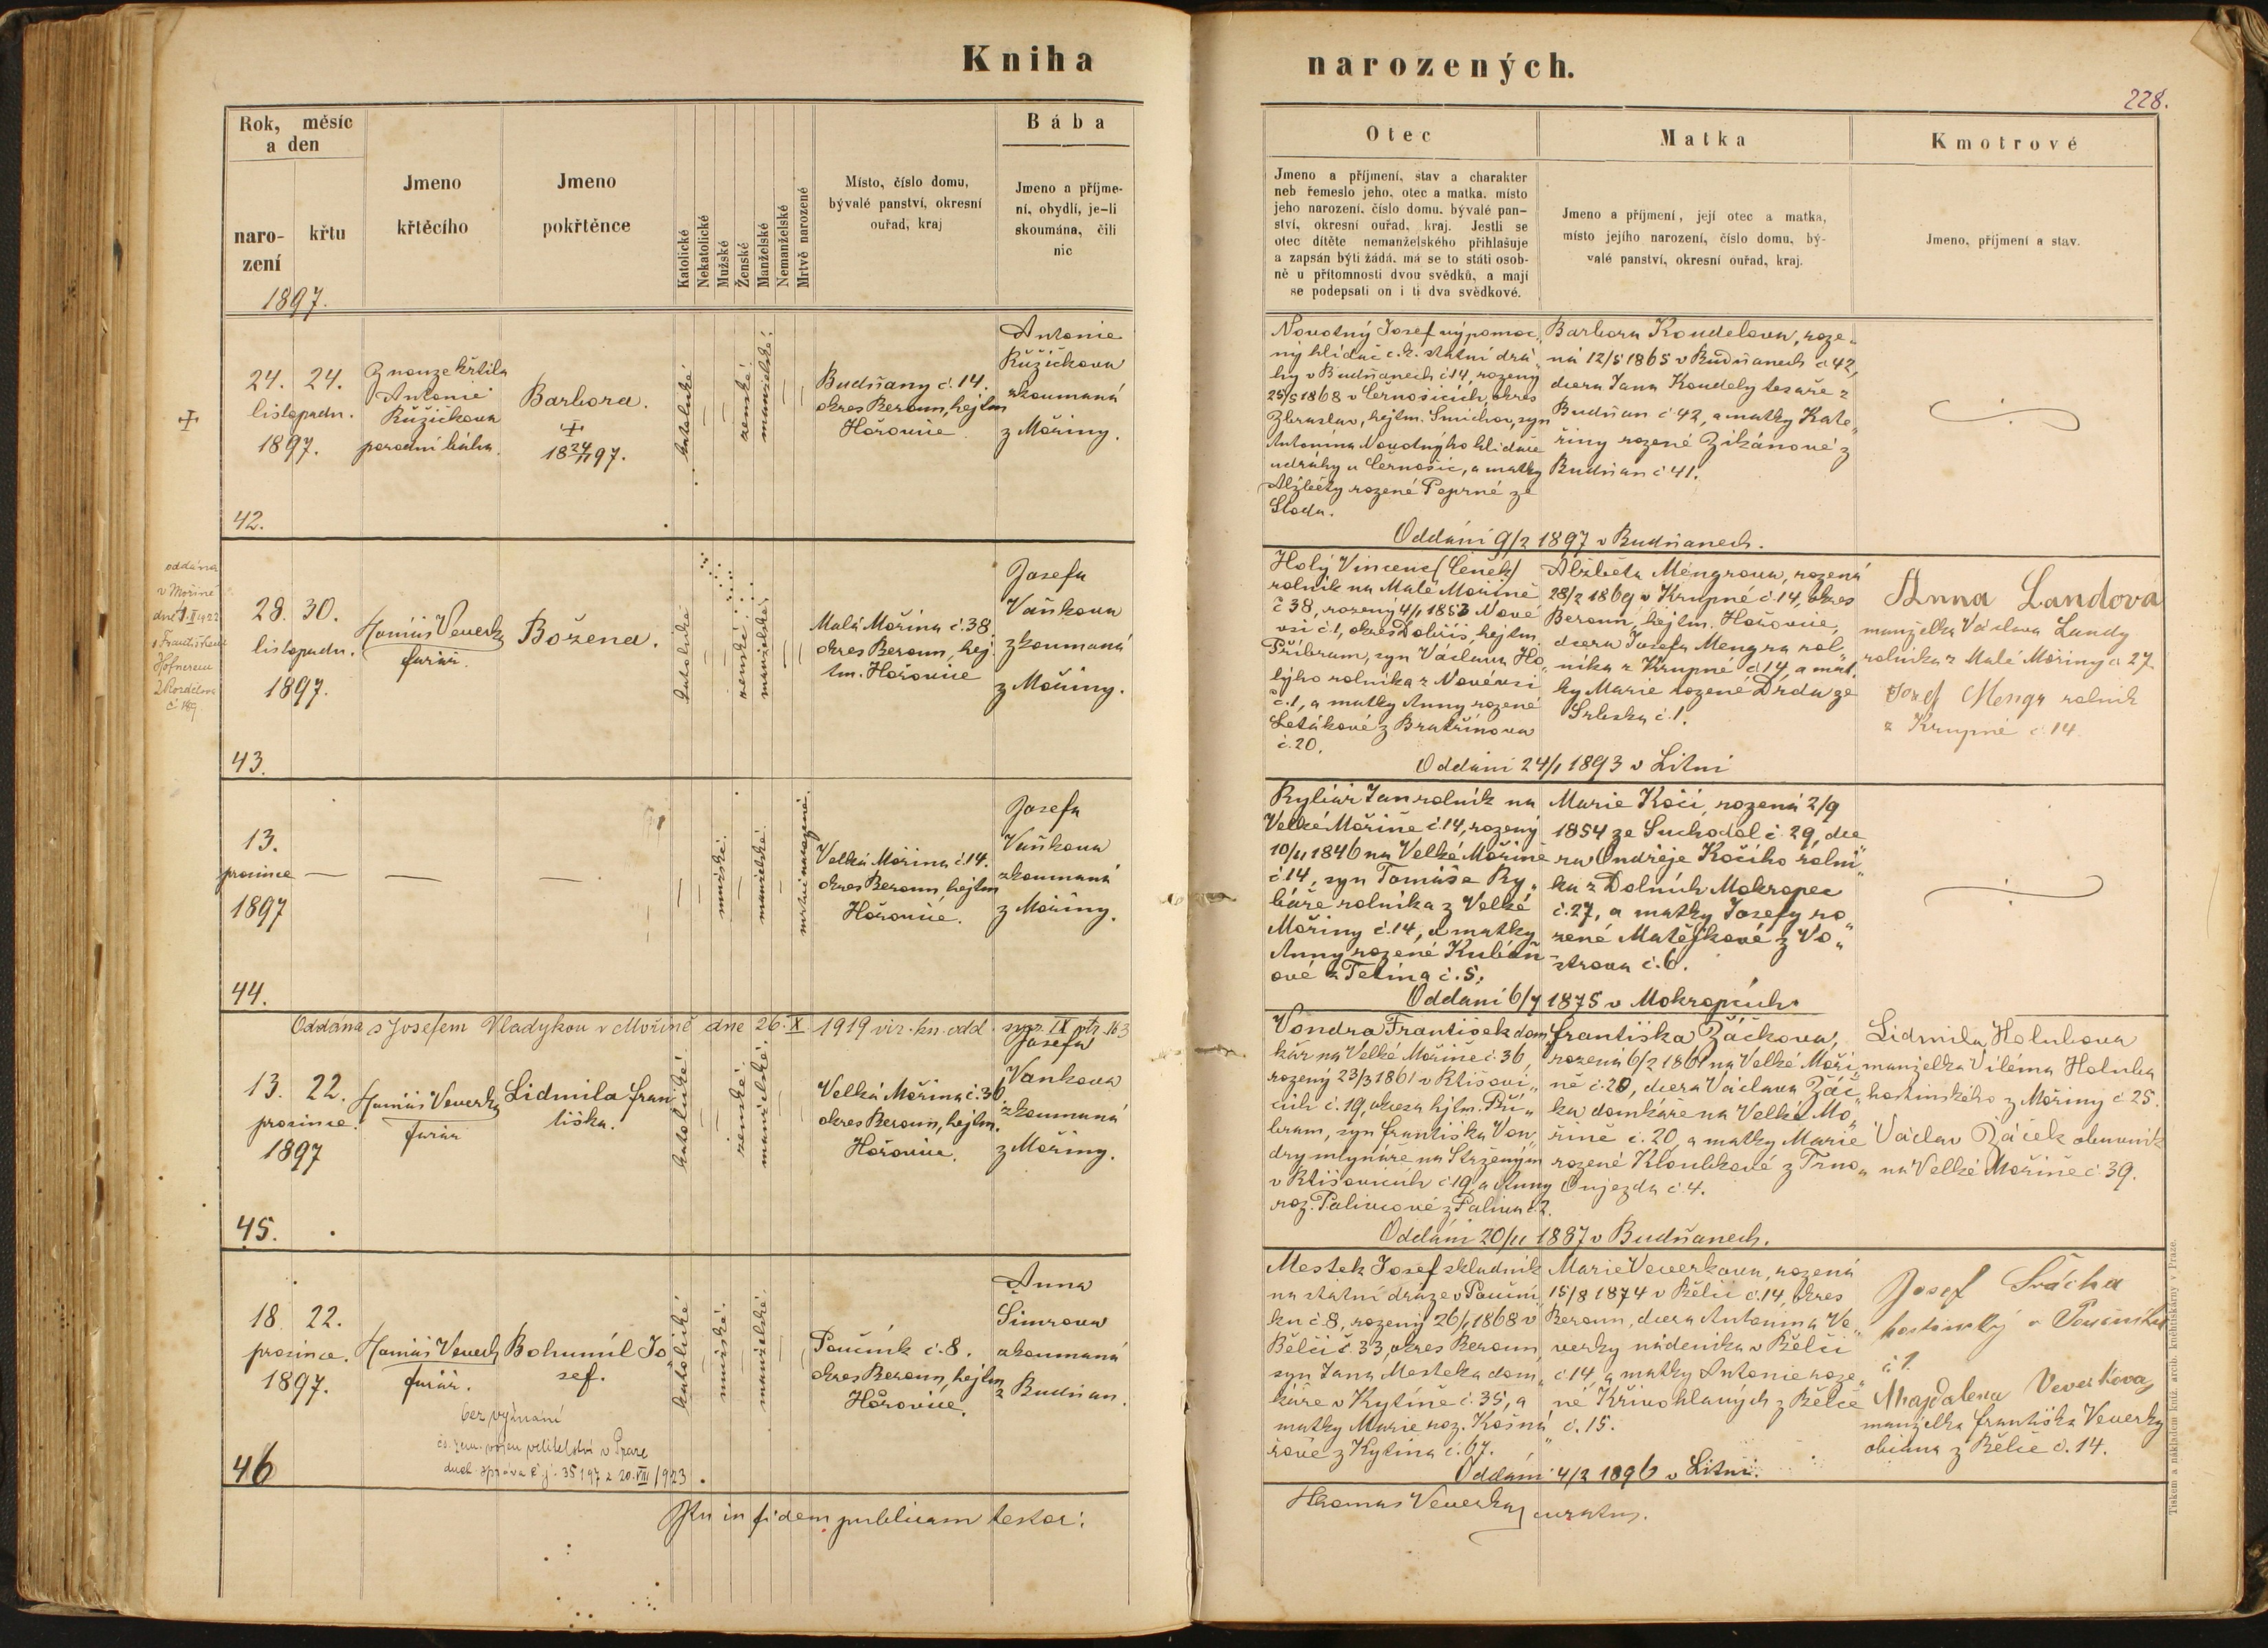 Kniha
narozených.
228.
Rok, měsíc
a den
naro-
zení
křtu
1897.
Jmeno
křtěcího
Jmeno
pokřtěnce
Katolické
Nekatolické
Mužské
Ženské
Manželské
Nemanželské
Mrtvě narozené
Místo, číslo domu,
bývalé panství, okresní
ouřad, kraj
Bába
Jmeno a příjme-
ní, obydlí, je-li
skoumána, čili
nic
Otec
Jmeno a příjmení, stav a charakter
neb řemeslo jeho, otec a matka, místo
jeho narození, číslo domu, bývalé pan-
ství, okresní ouřad, kraj. Jestli se
otec dítěte nemanželského přihlašuje
a zapsán býti žádá, má se to státi osob-
ně u přítomnosti dvou svědků, a mají
se podepsati on i ti dva svědkové.
Matka
Jmeno a příjmení, její otec a matka,
místo jejího narození, číslo domu, bý-
valé panství, okresní ouřad, kraj.
Kmotrové
Jmeno, příjmení a stav.
24. 24.
listopadu.
1897.
42.
Z nouze křtila
Antonie
Růžičkova
porodní bába.
Barbora.
18 24/11 97.
katolické
ženské.
manželské.
Budňany č. 14.
okres Beroun, hejtm
Hořovice.
Antonie
Růžičkova
zkoumaná
z Mořiny.
Novotný Josef výpomoc„
ný hlídač c. k. státní drá„
hy v Budňanech č 14, rozený
25/5 1868 v Černošicích, okres
Zbraslav, hejtm. Smíchov, syn
Antonína Novotnýho hlídače
u dráhy u Černošic, a matky
Alžběty rozené Poprné ze
Sloda.
Barbora Koudelova, roze„
ná 12/5 1865 v Budňanech č 42,
dcera Jana Koudely tesaře z
Budňan č 42, a matky Kate„
řiny rozené Zikánové z
Budňan č 41.
Oddáni 9/2 1897 v Budňanech.
oddána
v Mořině
dne 1. II 1922
s Františkem
Hofnerem
z Rozdělova
č 189
28. 30.
listopadu.
1897.
43.
Tomáš Veverka
farář.
Božena.
katolické
ženské.
manželské.
Malá Mořina č. 38.
okres Beroun, hej
tm. Hořovice
Josefa
Vaňkova
zkoumaná
z Mořiny.
Holý Vincenc (Čeněk)
rolník na Malé Mořině
č 38, rozený 4/1 1853 Nové
vsi č. 1, okres Dobříš, hejtm.
Příbram, syn Václava Ho„
lýho rolníka z Nové vsi
č. 1, a matky Anny rozené
Letákové z Bratřínova
č. 20.
Alžběta Mengrova, rozená
28/2 1869 v Krupné č. 14, okres
Beroun, hejtm. Hořovice,
dcera Josefa Mengra rol
níka z Krupné č 14, a mat.
ky Marie rozené Drda ze
Srbska č. 1.
Oddáni 24/1 1893 v Litni
Anna Landová
manželka Václava Landy
rolníka z Malé Mořiny č 27.
Josef Mengr rolník
z Krupné č. 14.
13.
prosince
1897
44.
mužské.
manželské.
mrtvě narozené.
Velká Mořina č. 14.
okres Beroun, hejtm
Hořovice.
Josefa
Vaňkova
zkoumaná
z Mořiny.
Rybář Jan rolník na
Velké Mořině č. 14, rozený
10/11 1846 na Velké Mořině
č. 14, syn Tomáše Ry„
báře rolníka z Velké
Mořiny č. 14, a matky
Anny rozené Kubán
ové z Tetína č. 5.
Marie Kočí, rozená 2/9
1854 ze Suchodol č. 29, dce
ra Ondřeje Kočího rolní„
ka z Dolních Mokropec
č. 27, a matky Josefy ro„
zené Matějkové z Vo„
strova č. 6.
Oddáni 6/7 1875 v Mokropcích.
Oddána s Josefem Vladykou v Mořině dne 26. X. 1919 viz. kn. odd. svaz. IX str. 163
13. 22.
prosince.
1897
45.
Tomáš Veverka
farář
Lidmila Fran
tiška.
katolické.
ženské.
manželské.
Velká Mořina č. 36.
okres Beroun, hejtm.
Hořovice.
Josefa
Vaňkova
zkoumaná
z Mořiny.
Vondra František dom„
kář na Velké Mořině č. 36,
rozený 23/3 1861 v Ktišovi„
cích č. 19, okresu hejtm. Pří„
bram, syn Františka Von„
dry mlynáře na Strženým
v Ktišovicích č 19, a Anny
roz. Palivcové z Paliva č 2.
Františka Žáčkova,
rozená 6/2 1861 na Velké Moři„
ně č. 20, dcera Václava Žáč„
ka domkáře na Velké Mo„
řině č. 20, a matky Marie
rozené Kloubkové z Trno„
Oujezda č. 4.
Oddáni 20/11 1887 v Budňanech.
Lidmila Holubova
manželka Viléma Holuba
hostinského z Mořiny č 25.
Václav Žáček obuvník
na Velké Mořině č. 39.
18. 22.
prosince.
1897.
46
Tomáš Veverka
farář.
Bohumíl Jo
sef.
bez vyznání
čs. zem. vojen velitelství v Praze
duch. správa č. j. 35197 z 20. VIII 1923.
katolické
mužské.
manželské.
Poučník č. 8.
okres Beroun, hejtm
Hořovice.
Anna
Šimrova
zkoumaná
z Budňan.
Mestek Josef skladník
na státní dráze v Pouční
ku č. 8, rozený 26/1 1868 v
Bělči č. 33, okres Beroun,
syn Jana Mesteka dom„
káře v Kytíně č. 35, a
matky Marie roz. Košná„
rové z Kytína č. 67.
Marie Veverkova, rozená
15/8 1874 v Bělči č. 14, okres
Beroun, dcera Antonína Ve„
verky nádeníka v Bělči
č 14, a matky Antonie roze„
né Křivohlavých z Bělče
č. 15.
Oddáni 4/2 1896 v Litni.
Josef Srácha
hostinský v Poučníku
č 1.
Magdalena Veverkova,
manželka Františka Veverky
občana z Bělče č. 14.
Ita in fidem publicam testor:
Thomas Veverka, curatus.
Tiskem a nákladem kníž. arcib. knihtiskárny v Praze.